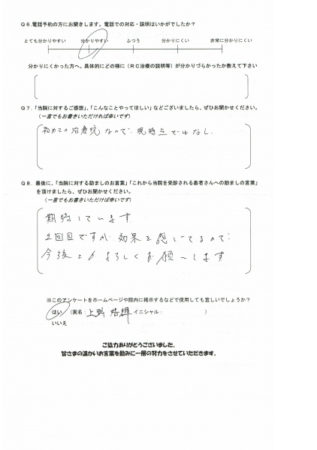 Q6.電話予約の方にお聞きします。電話での対応・説明はいかがでしたか?
とても分かりやすい 分かりやすい ふつう 分かりにくい 非常に分かりにくい
分かりにくかった方へ。具体的にどの様に(RC治療の説明等)が分かりづらかったか教えて下さい
Q7.「当院に対するご感想」、「こんなことやってほしい」などございましたら、ぜひお聞かせください。
(一言でもお書きいただければ幸いです)
初めての治療院なので、現時点ではなし。
Q8.最後に、「当院に対する励ましのお言葉」「これから当院を受診される患者さんへの励ましの言葉」
を頂けましたら、ぜひお聞かせください。
(一言でもお書きいただければ幸いです)
期待しています
2回目ですが効果を感じてるので
今後ともよろしくお願いします
※このアンケートをホームページや院内に掲示するなどで使用しても宜しいでしょうか?
はい (実名: 上野 イニシャル: )
いいえ
ご協力ありがとうございました。
皆さまの温かいお言葉を励みに一層の努力をさせていただきます。